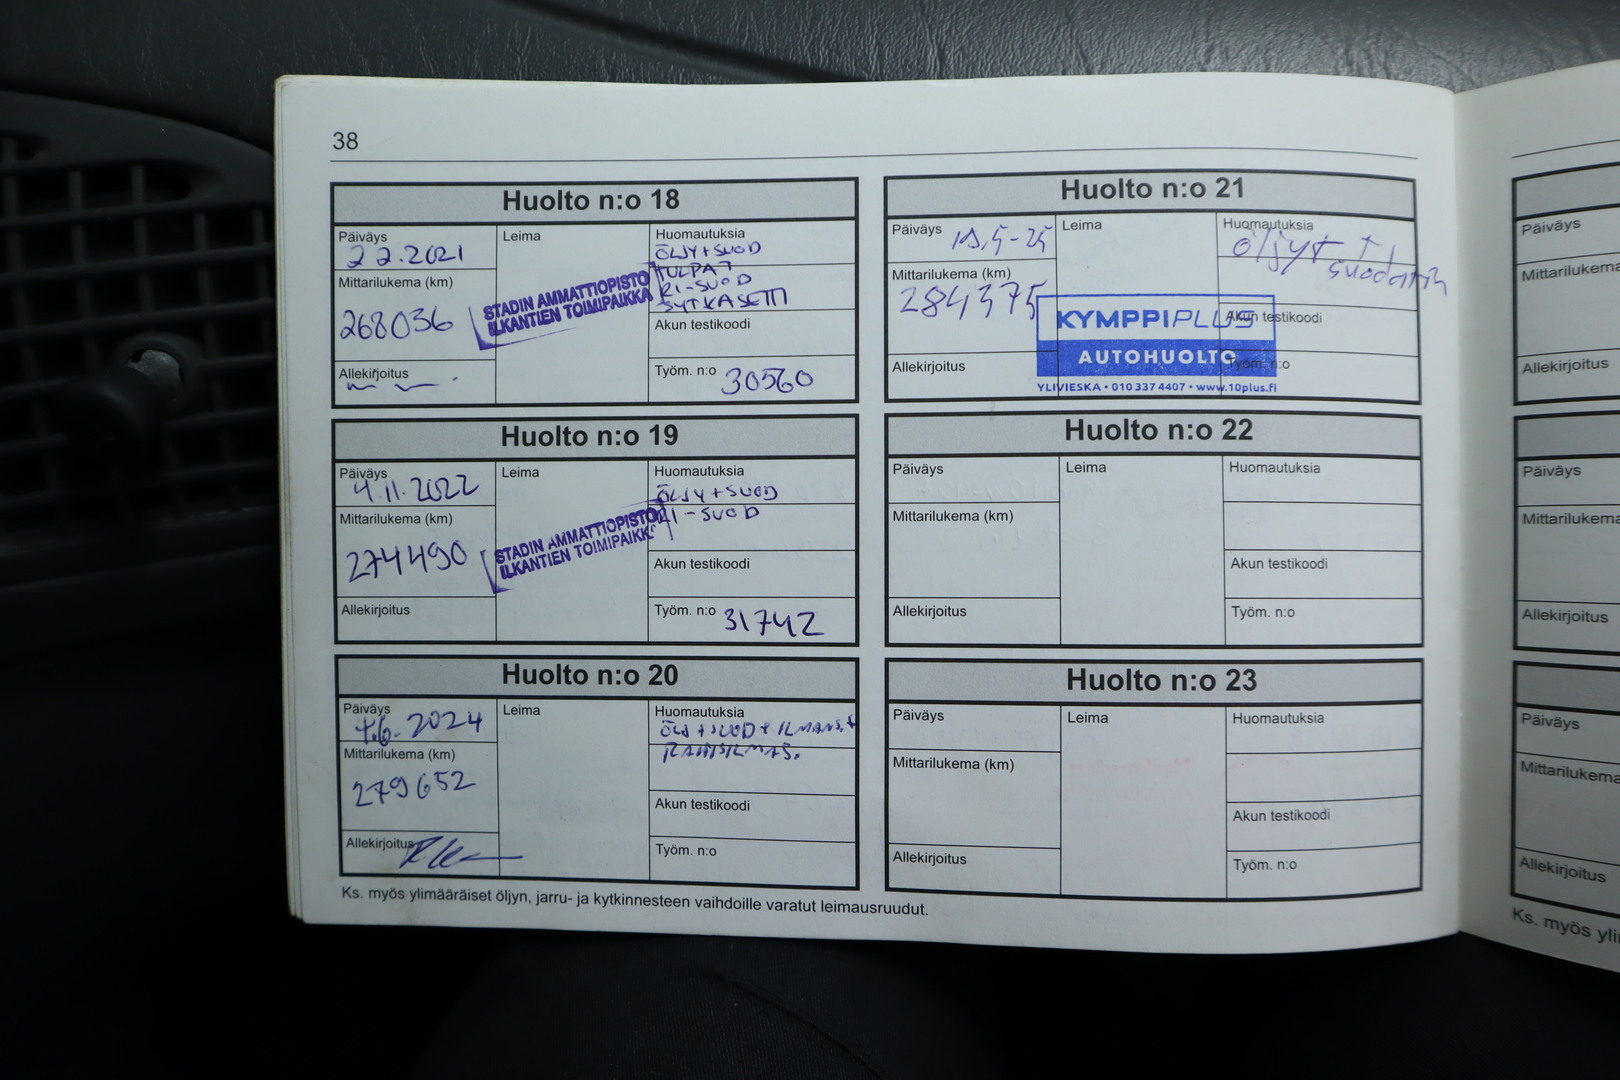 38
Huolto n:o 18
Päiväys
2 2.2021
Leima
Huomautuksia
ÖLJY+SUOD
TULPAT
RI-SUOD
SYTKASETTI
Mittarilukema (km)
268036
STADIN AMMATTIOPISTO
ILKANTIEN TOIMIPAIKKA
Akun testikoodi
Allekirjoitus
Työm. n:o 30560
Huolto n:o 19
Päiväys
4.11.2022
Leima
Huomautuksia
ÖLJY+SUOD
RI-SUOD
Mittarilukema (km)
274490
STADIN AMMATTIOPISTO
ILKANTIEN TOIMIPAIKK
Akun testikoodi
Allekirjoitus
Työm. n:o 31742
Huolto n:o 20
Päiväys
4.6.2024
Leima
Huomautuksia
Mittarilukema (km)
279652
Akun testikoodi
Allekirjoitus
Työm. n:o
Ks. myös ylimääräiset öljyn, jarru- ja kytkinnesteen vaihdoille varatut leimausruudut.
Huolto n:o 21
Päiväys
19.5-25
Leima
Huomautuksia
öljyt +
suodatin
Mittarilukema (km)
284375
KYMPPIPLUS
AUTOHUOLTO
YLIVIESKA • 010 337 4407 • www.10plus.fi
Akun testikoodi
Allekirjoitus
Työm. n:o
Huolto n:o 22
Päiväys
Leima
Huomautuksia
Mittarilukema (km)
Akun testikoodi
Allekirjoitus
Työm. n:o
Huolto n:o 23
Päiväys
Leima
Huomautuksia
Mittarilukema (km)
Akun testikoodi
Allekirjoitus
Työm. n:o
Päiväys
Mittarilukema
Allekirjoitus
Päiväys
Mittarilukema
Allekirjoitus
Päiväys
Mittarilukema
Allekirjoitus
Ks. myös yli